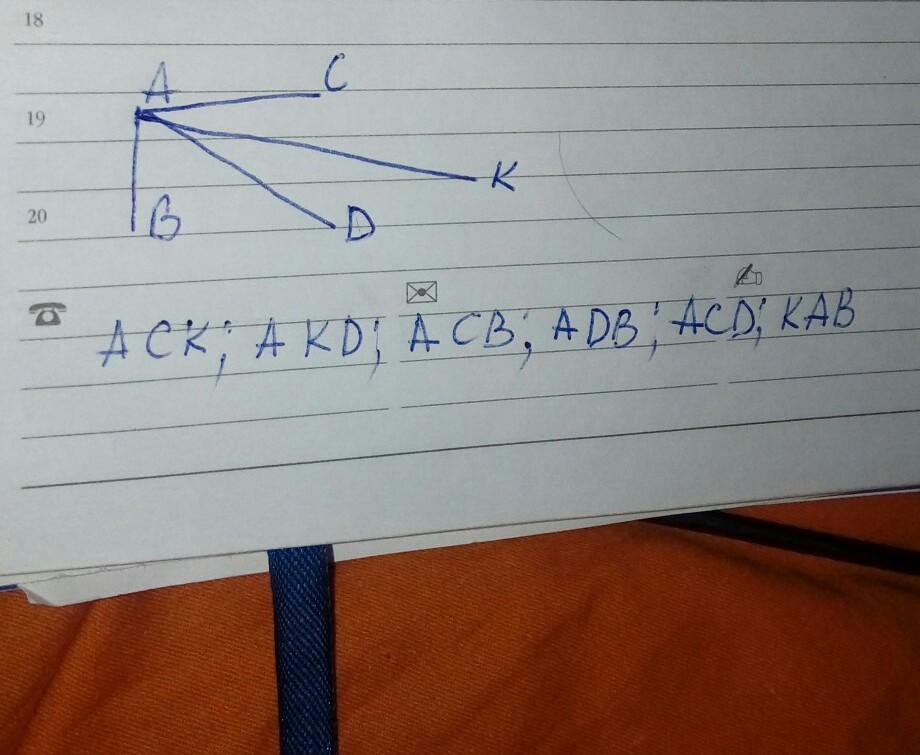 18
A C
19
K
20 B D
ACK; AKD; ACB; ADB; ACD; KAB